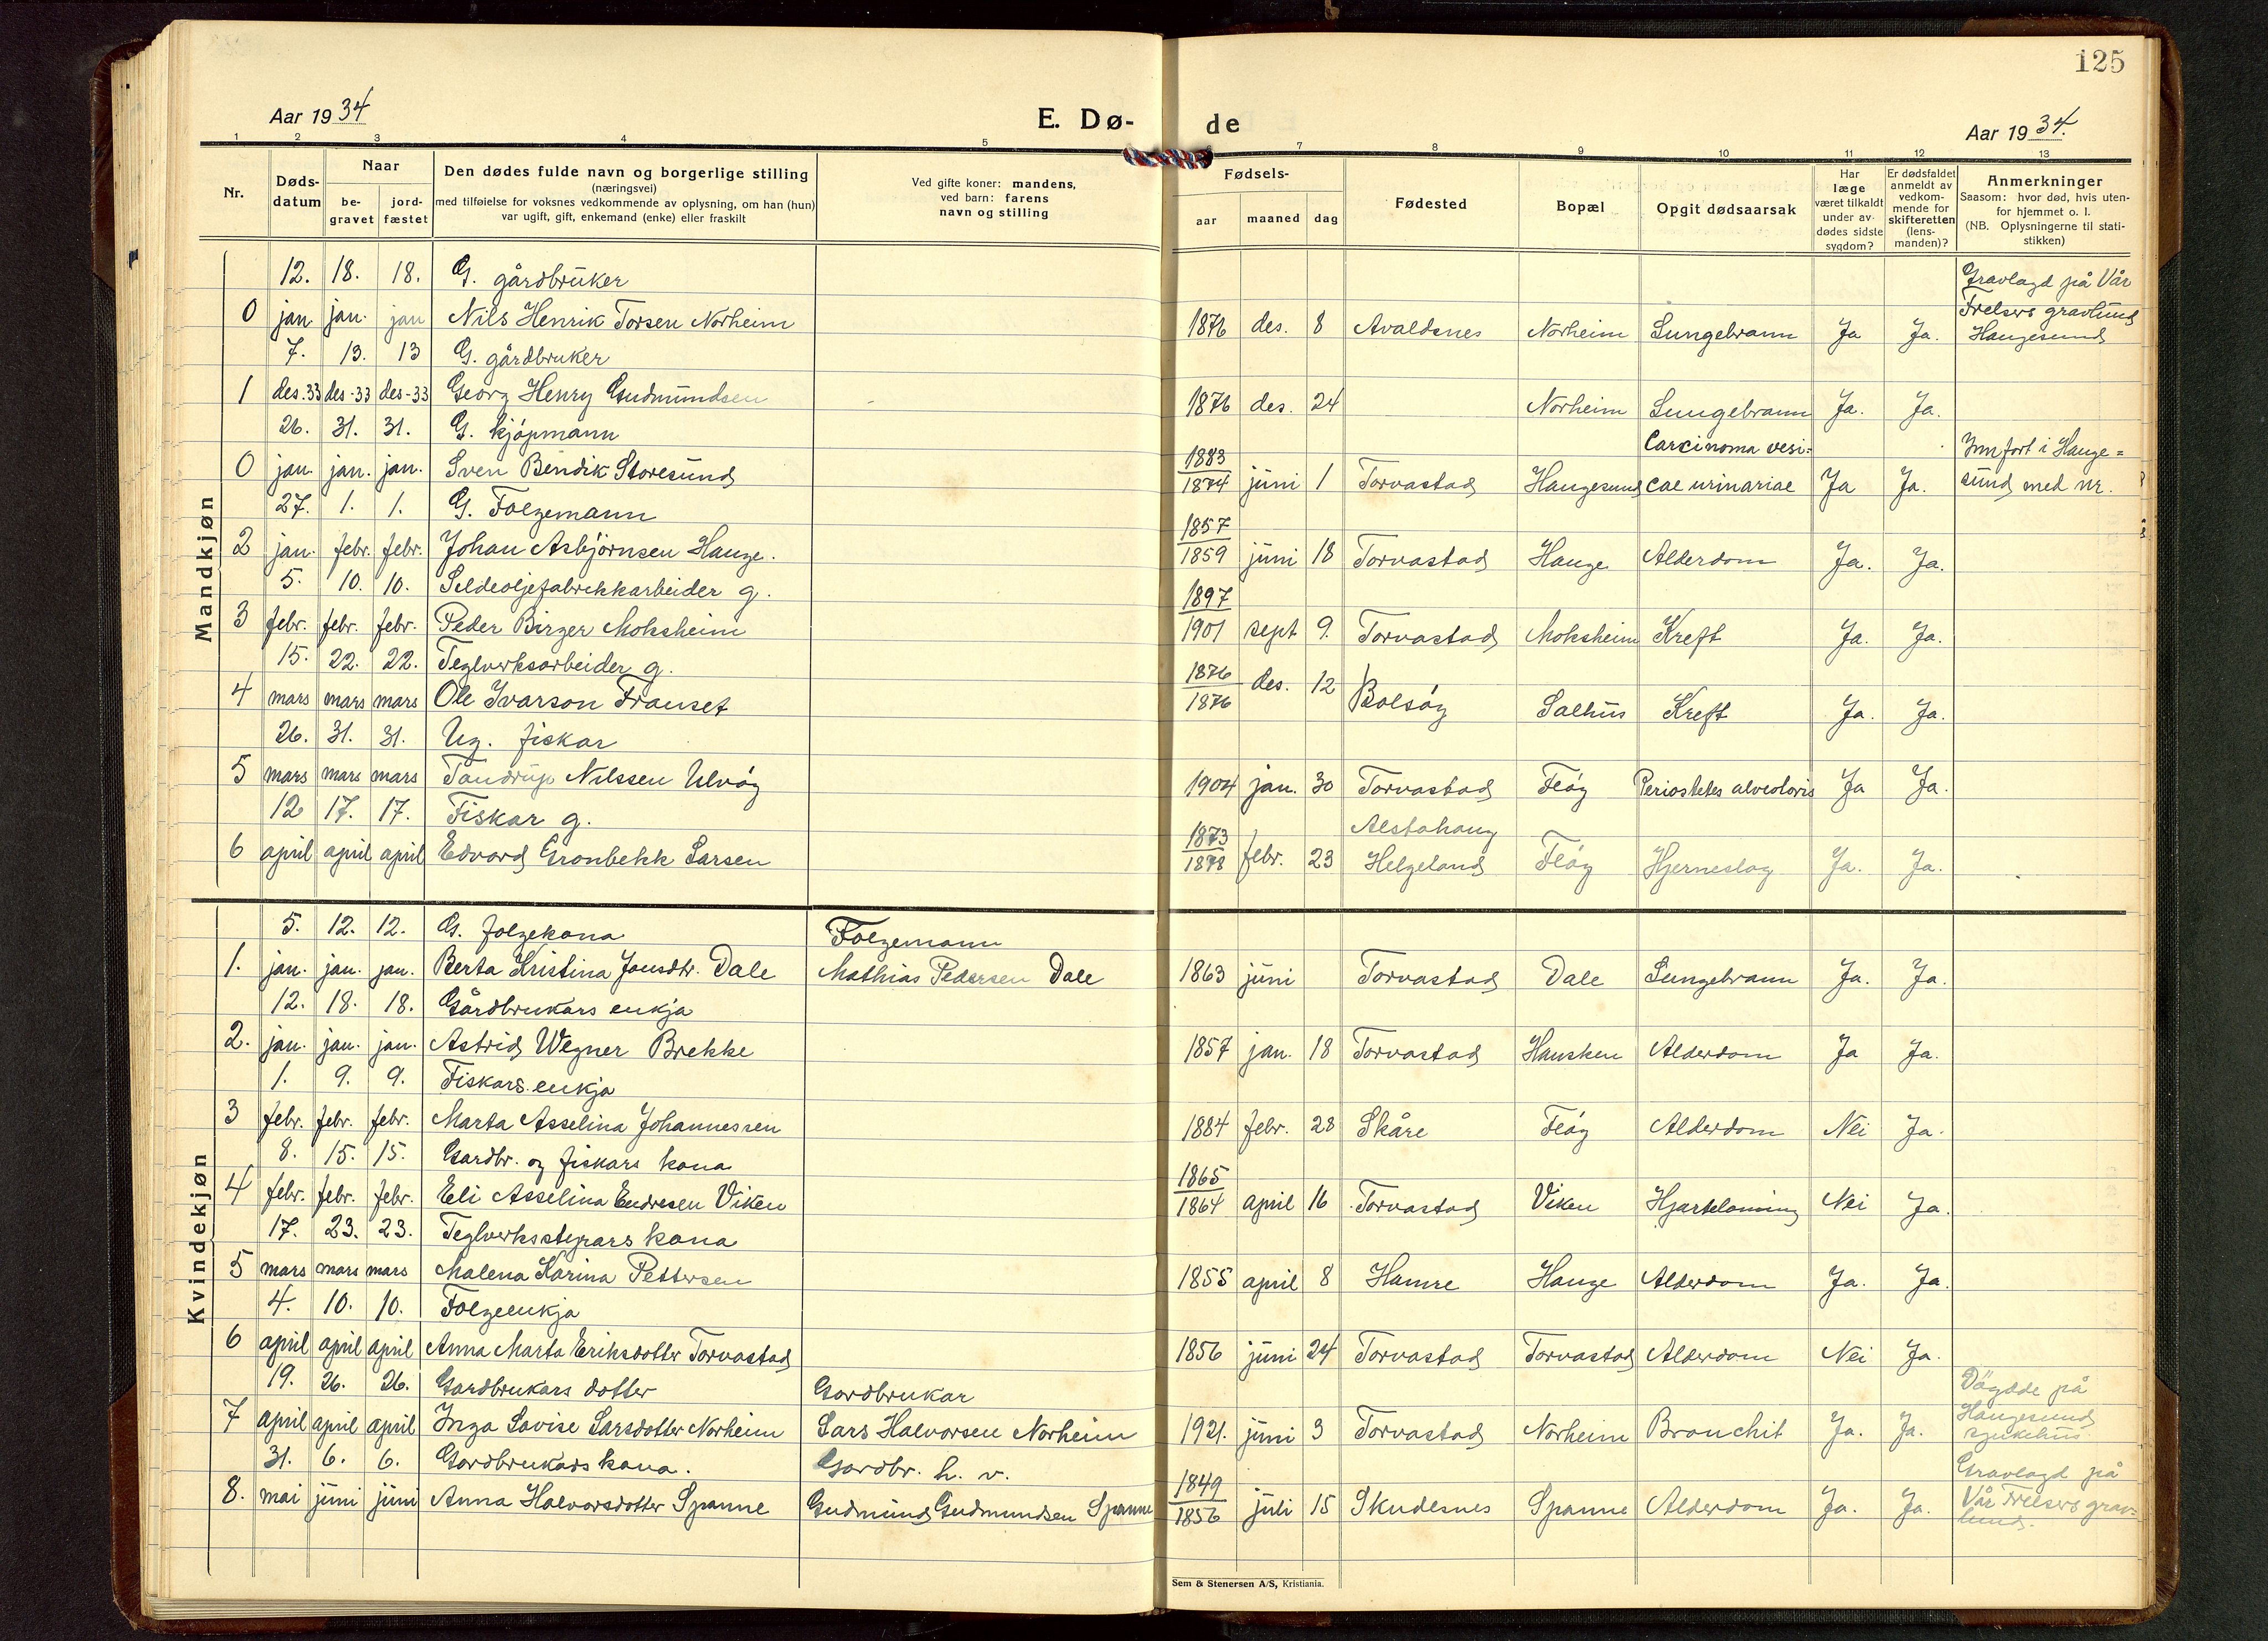 125
Aar 1934
E. Dø-
de
Aar 1934.
1 2 3 4 5 6 7 8 9 10 11 12 13
Nr.
Døds-
datum
Naar
be-
gravet
jord-
fæstet
Den dødes fulde navn og borgerlige stilling
(næringsvei)
med tilføielse for voksnes vedkommende av oplysning, om han (hun)
var ugift, gift, enkemand (enke) eller fraskilt
Ved gifte koner: mandens,
ved barn: farens
navn og stilling
Fødsels-
aar maaned dag
Fødested
Bopæl
Opgit dødsaarsak
Har
læge
været tilkaldt
under av-
dødes sidste
sygdom?
Er dødsfaldet
anmeldt av
vedkom-
mende for
skifteretten
(lens-
manden)?
Anmerkninger
Saasom: hvor død, hvis uten-
for hjemmet o. l.
(NB. Oplysningerne til stati-
stikken)
Mandkjøn
12. 18. 18. G. gårdbruker Gravlagd på Vår
0 jan jan. jan Nils Henrik Torsen Norheim 1876 des. 8 Avaldsnes Norheim Lungebrann Ja Ja. Frelsers gravlund
Haugesund
7. 13. 13 G. gårdbruker
1 des.33 des-33 des-33 Georg Henry Gudmundsen 1876 des. 24 Norheim Lungebrann Ja. Ja.
26. 31. 31. G. kjøpmann 1883 Carcinoma vesi= Innført i Hauge=
0 jan. jan. jan. Sven Bendik Storesund 1874 juni 1 Torvastad Haugesund cae urinariae Ja Ja. sund med nr.
27. 1. 1. G. Folgemann 1857
2 jan. febr. febr. Johan Asbjørnsen Hauge. 1859 juni 18 Torvastad Hauge Alderdom Ja. Ja.
5. 10. 10. Sildeoljefabrikkarbeider g. 1897
3 febr. febr. febr. Peder Birger Moksheim 1901 sept 9. Torvastad Moksheim Kreft Ja. Ja.
15. 22. 22. Teglverksarbeider g. 1876
4 mars mars mars Ole Ivarson Franset 1876 des. 12 Bolsøy Salhus Kreft Ja. Ja.
26. 31. 31. Ug. fiskar
5 mars mars mars Tandrup Nilssen Ulvøy 1904 jan. 30 Torvastad Feøy Ja Ja.
12 17. 17. Fiskar g. 1873 Alstahaug
6 april april april Edvard Grønbekk Larsen 1878 febr. 23 Helgeland Feøy Hjerneslag Ja. Ja.
Kvindekjøn
5. 12. 12. G. folgekona Folgemann
1. jan. jan. jan. Berta Kristina Jonsdtr. Dale Mathias Pedersen Dale 1863 juni Torvastad Dale Lungebrann Ja. Ja.
12. 18. 18. Gårdbrukars enkja
2. jan. jan. jan. Astrid Wegner Brekke 1857 jan. 18 Torvastad Hausken Alderdom Ja Ja.
1. 9. 9. Fiskars enkja
3 febr. febr. febr. Marta Asselina Johannessen 1884 febr. 28 Skåre Feøy Alderdom Nei Ja.
8. 15. 15. Gardbr. og fiskars kona 1865
4 febr. febr. febr. Eli Asselina Endresen Viken 1864 april 16 Torvastad Viken Hjartelaming Nei Ja.
17. 23. 23. Teglverksstyrars kona
5 mars mars mars Malena Karina Pettersen 1855 april 8 Hamre Hauge Alderdom Ja. Ja.
4. 10. 10. Folgeenkja
6 april april april Anna Marta Eriksdotter Torvastad 1856 juni 24 Torvastad Torvastad Alderdom Nei Ja.
19. 26. 26. Gardbrukars dotter Gardbrukar Døydde på
7 april april april Inga Lovise Larsdotter Norheim Lars Halvorsen Norheim 1921. juni 3 Torvastad Norheim Bronchit Ja. Ja. Haugesund
sjukehus.
31. 6. 6. Gardbrukars kona. Gardbr. h. v. 1849 Gravlagd på
8. mai juni juni Anna Halvorsdotter Spanne Gudmund Gudmundsen Spanne 1856 juli 15 Skudesnes Spanne Alderdom Ja. Ja. Vår Frelsers grav=
lund.
Sem & Stenersen A/S, Kristiania.